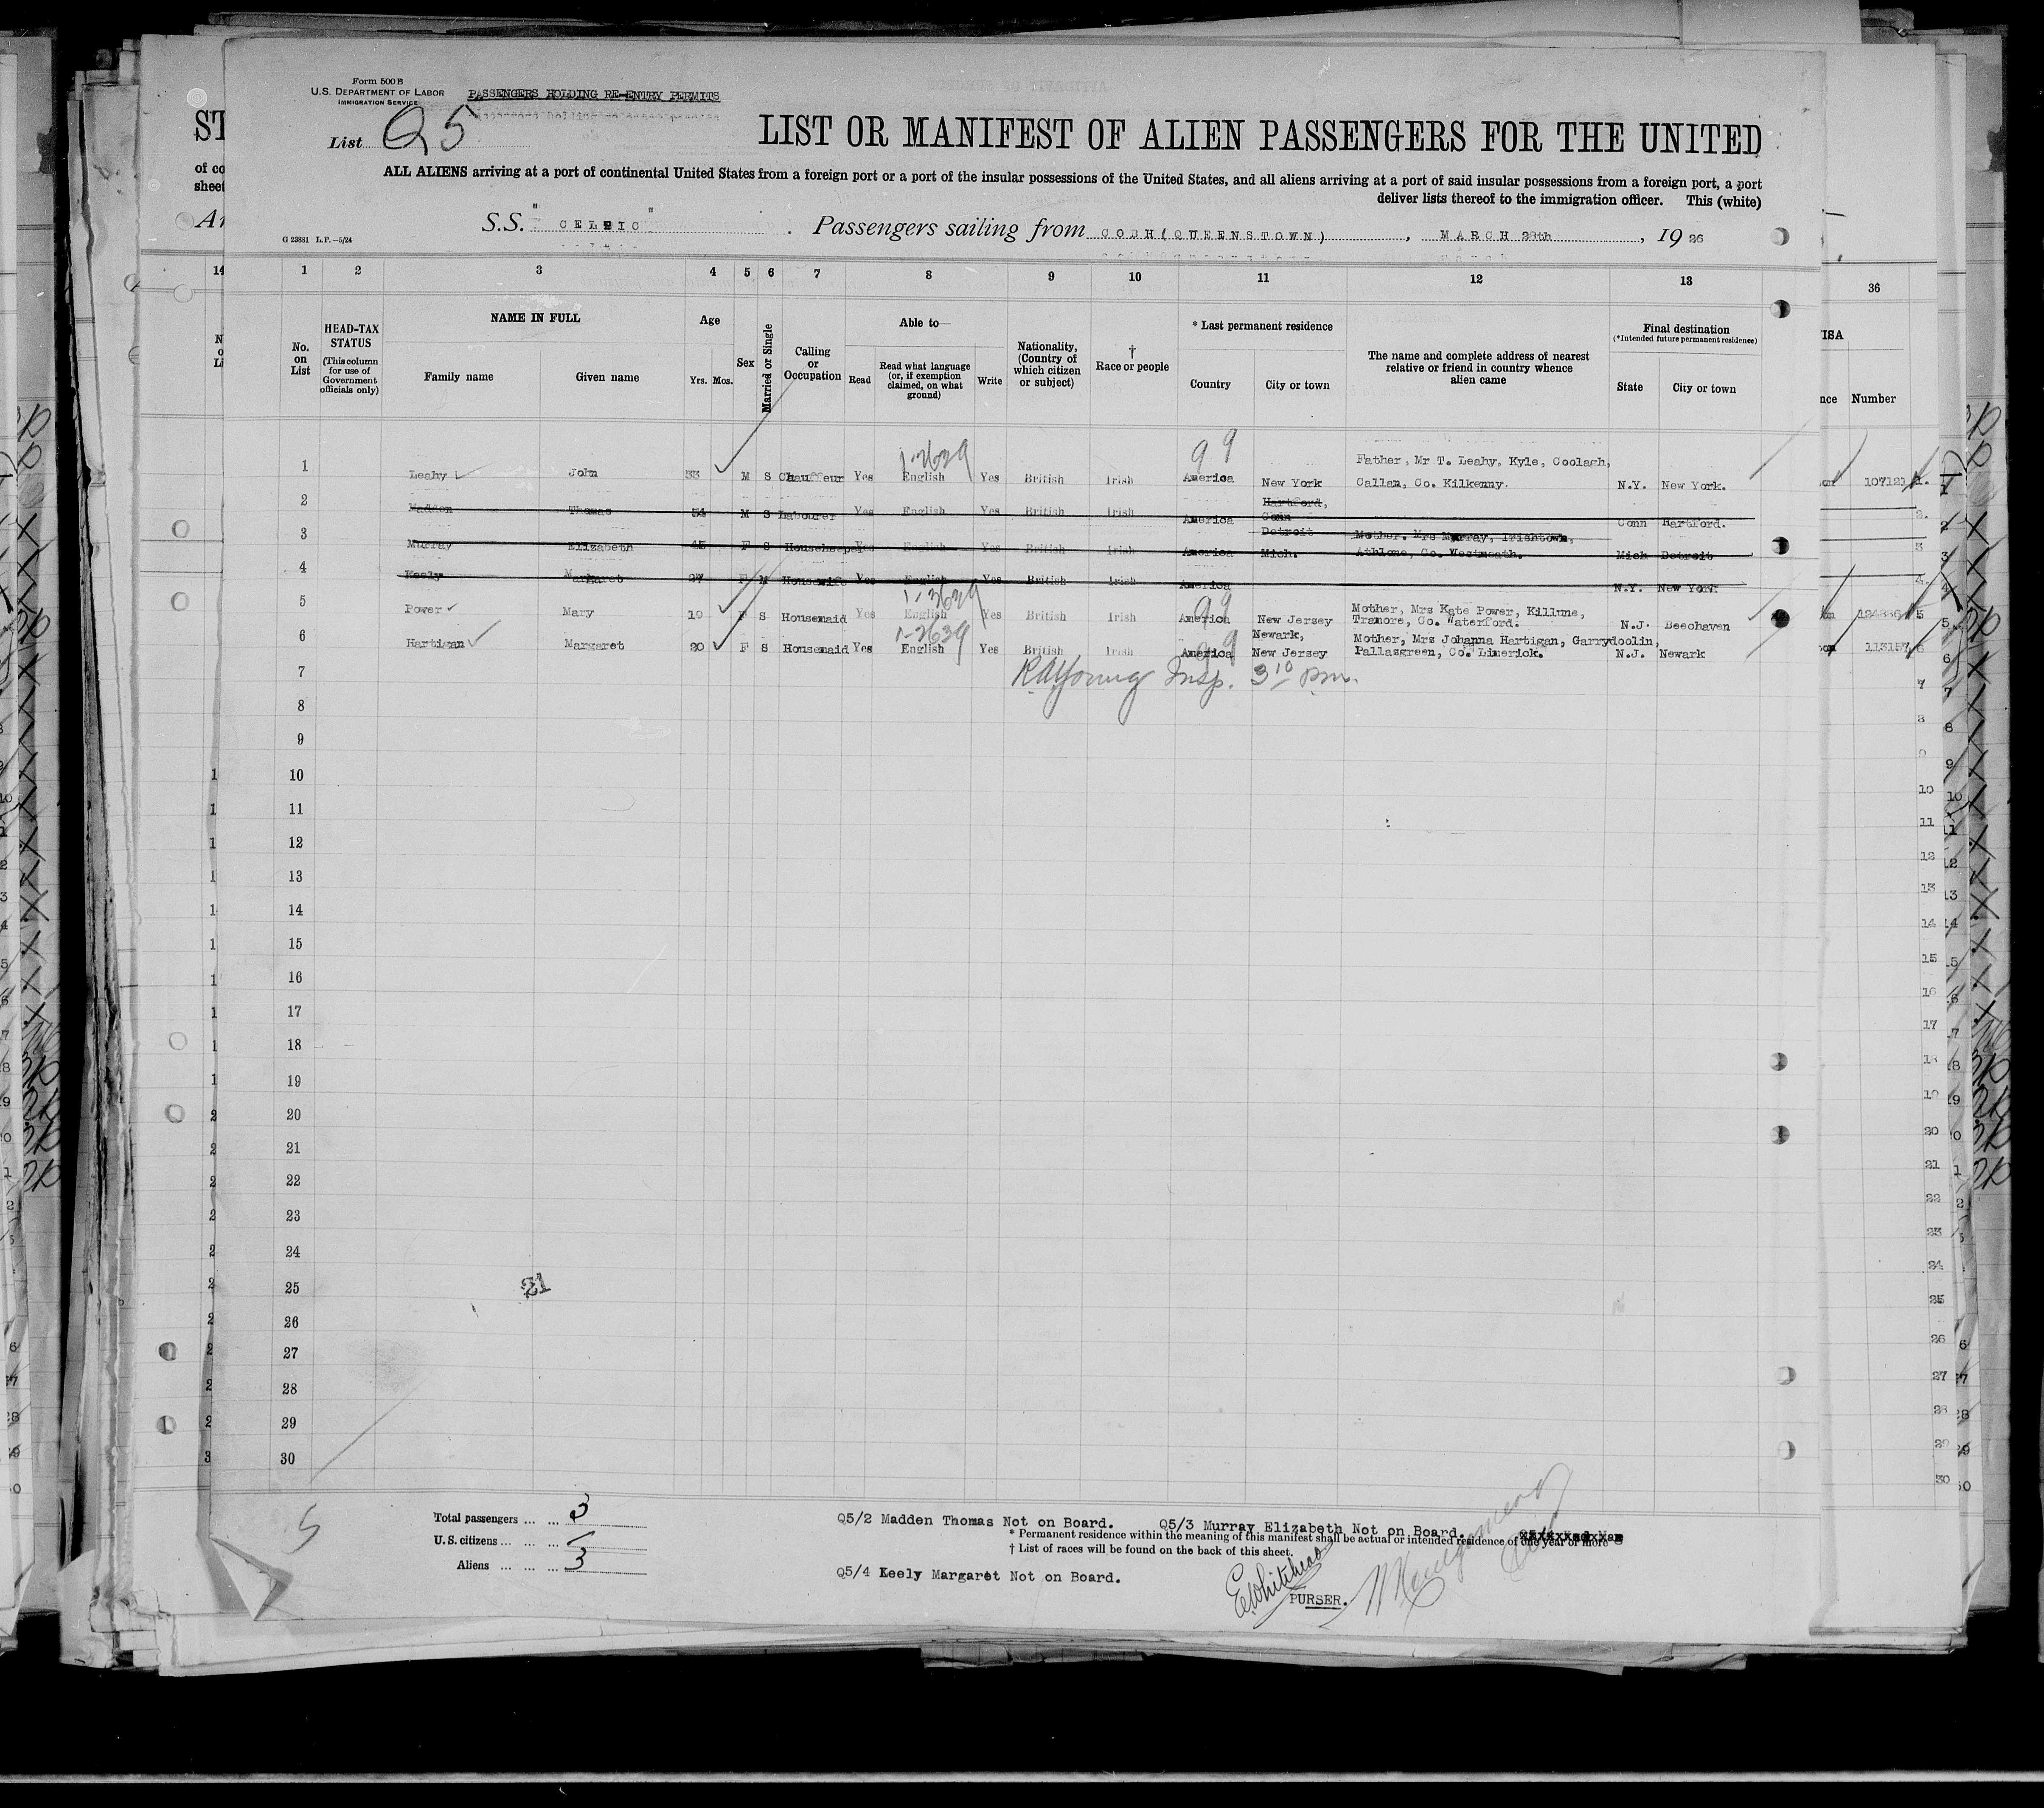 Form 500 B
U.S. DEPARTMENT OF LABOR
IMMIGRATION SERVICE
PASSENGERS HOLDING RE-ENTRY PERMITS
List Q5
LIST OR MANIFEST OF ALIEN PASSENGERS FOR THE UNITED
ALL ALIENS arriving at a port of continental United States from a foreign port or a port of the insular possessions of the United States, and all aliens arriving at a port of said insular possessions from a foreign port, a port
deliver lists thereof to the immigration officer. This (white)
S.S. "CELTIC". Passengers sailing from COBH(QUEENSTOWN), MARCH 28th, 1926
G 23881 L.P.—5/24
1 2 3 4 5 6 7 8 9 10 11 12 13
No. on List
HEAD-TAX STATUS (This column for use of Government officials only)
NAME IN FULL
Family name Given name
Age
Yrs. Mos.
Sex
Married or Single
Calling or Occupation
Able to—
Read
Read what language (or, if exemption claimed, on what ground)
Write
Nationality, (Country of which citizen or subject)
† Race or people
* Last permanent residence
Country City or town
The name and complete address of nearest relative or friend in country whence alien came
Final destination
(*Intended future permanent residence)
State City or town
36
Number
1 Leahy John 33 M S Chauffeur Yes English Yes British Irish America New York Father, Mr T. Leahy, Kyle, Coolagh, Callan, Co. Kilkenny. N.Y. New York. 107121
2 Madden Thomas 54 M S Labourer Yes English Yes British Irish America Hartford, Conn Conn Hartford.
3 Murray Elizabeth 45 F S Yes English Yes British Irish America Detroit Mich. Mother. Mrs Murray, Irishtown, Athlone, Co. Westmeath. Mich Detroit
4 Keely Margaret 27 F M Housewife Yes English Yes British Irish America N.Y. New York.
5 Power Mary 19 F S Housemaid Yes English Yes British Irish America New Jersey Mother, Mrs Kate Power, Killune, Tramore, Co. Waterford. N.J. Beechaven
6 Hartigan Margaret 20 F S Housemaid Yes English Yes British Irish America Newark, New Jersey Mother, Mrs Johanna Hartigan, Garrydoolin, Pallasgreen, Co. Limerick. N.J. Newark 113157
7 RAYoung Insp. 3 10 pm.
8
9
10
11
12
13
14
15
16
17
18
19
20
21
22
23
24
25
26
27
28
29
30
Total passengers ... ... 3
U.S. citizens ... ... ...
Aliens ... ... ... 3
Q5/2 Madden Thomas Not on Board. Q5/3 Murray Elizabeth Not on Board.
* Permanent residence within the meaning of this manifest shall be actual or intended residence of one year or more
† List of races will be found on the back of this sheet.
Q5/4 Keely Margaret Not on Board.
EWhitehead
PURSER.